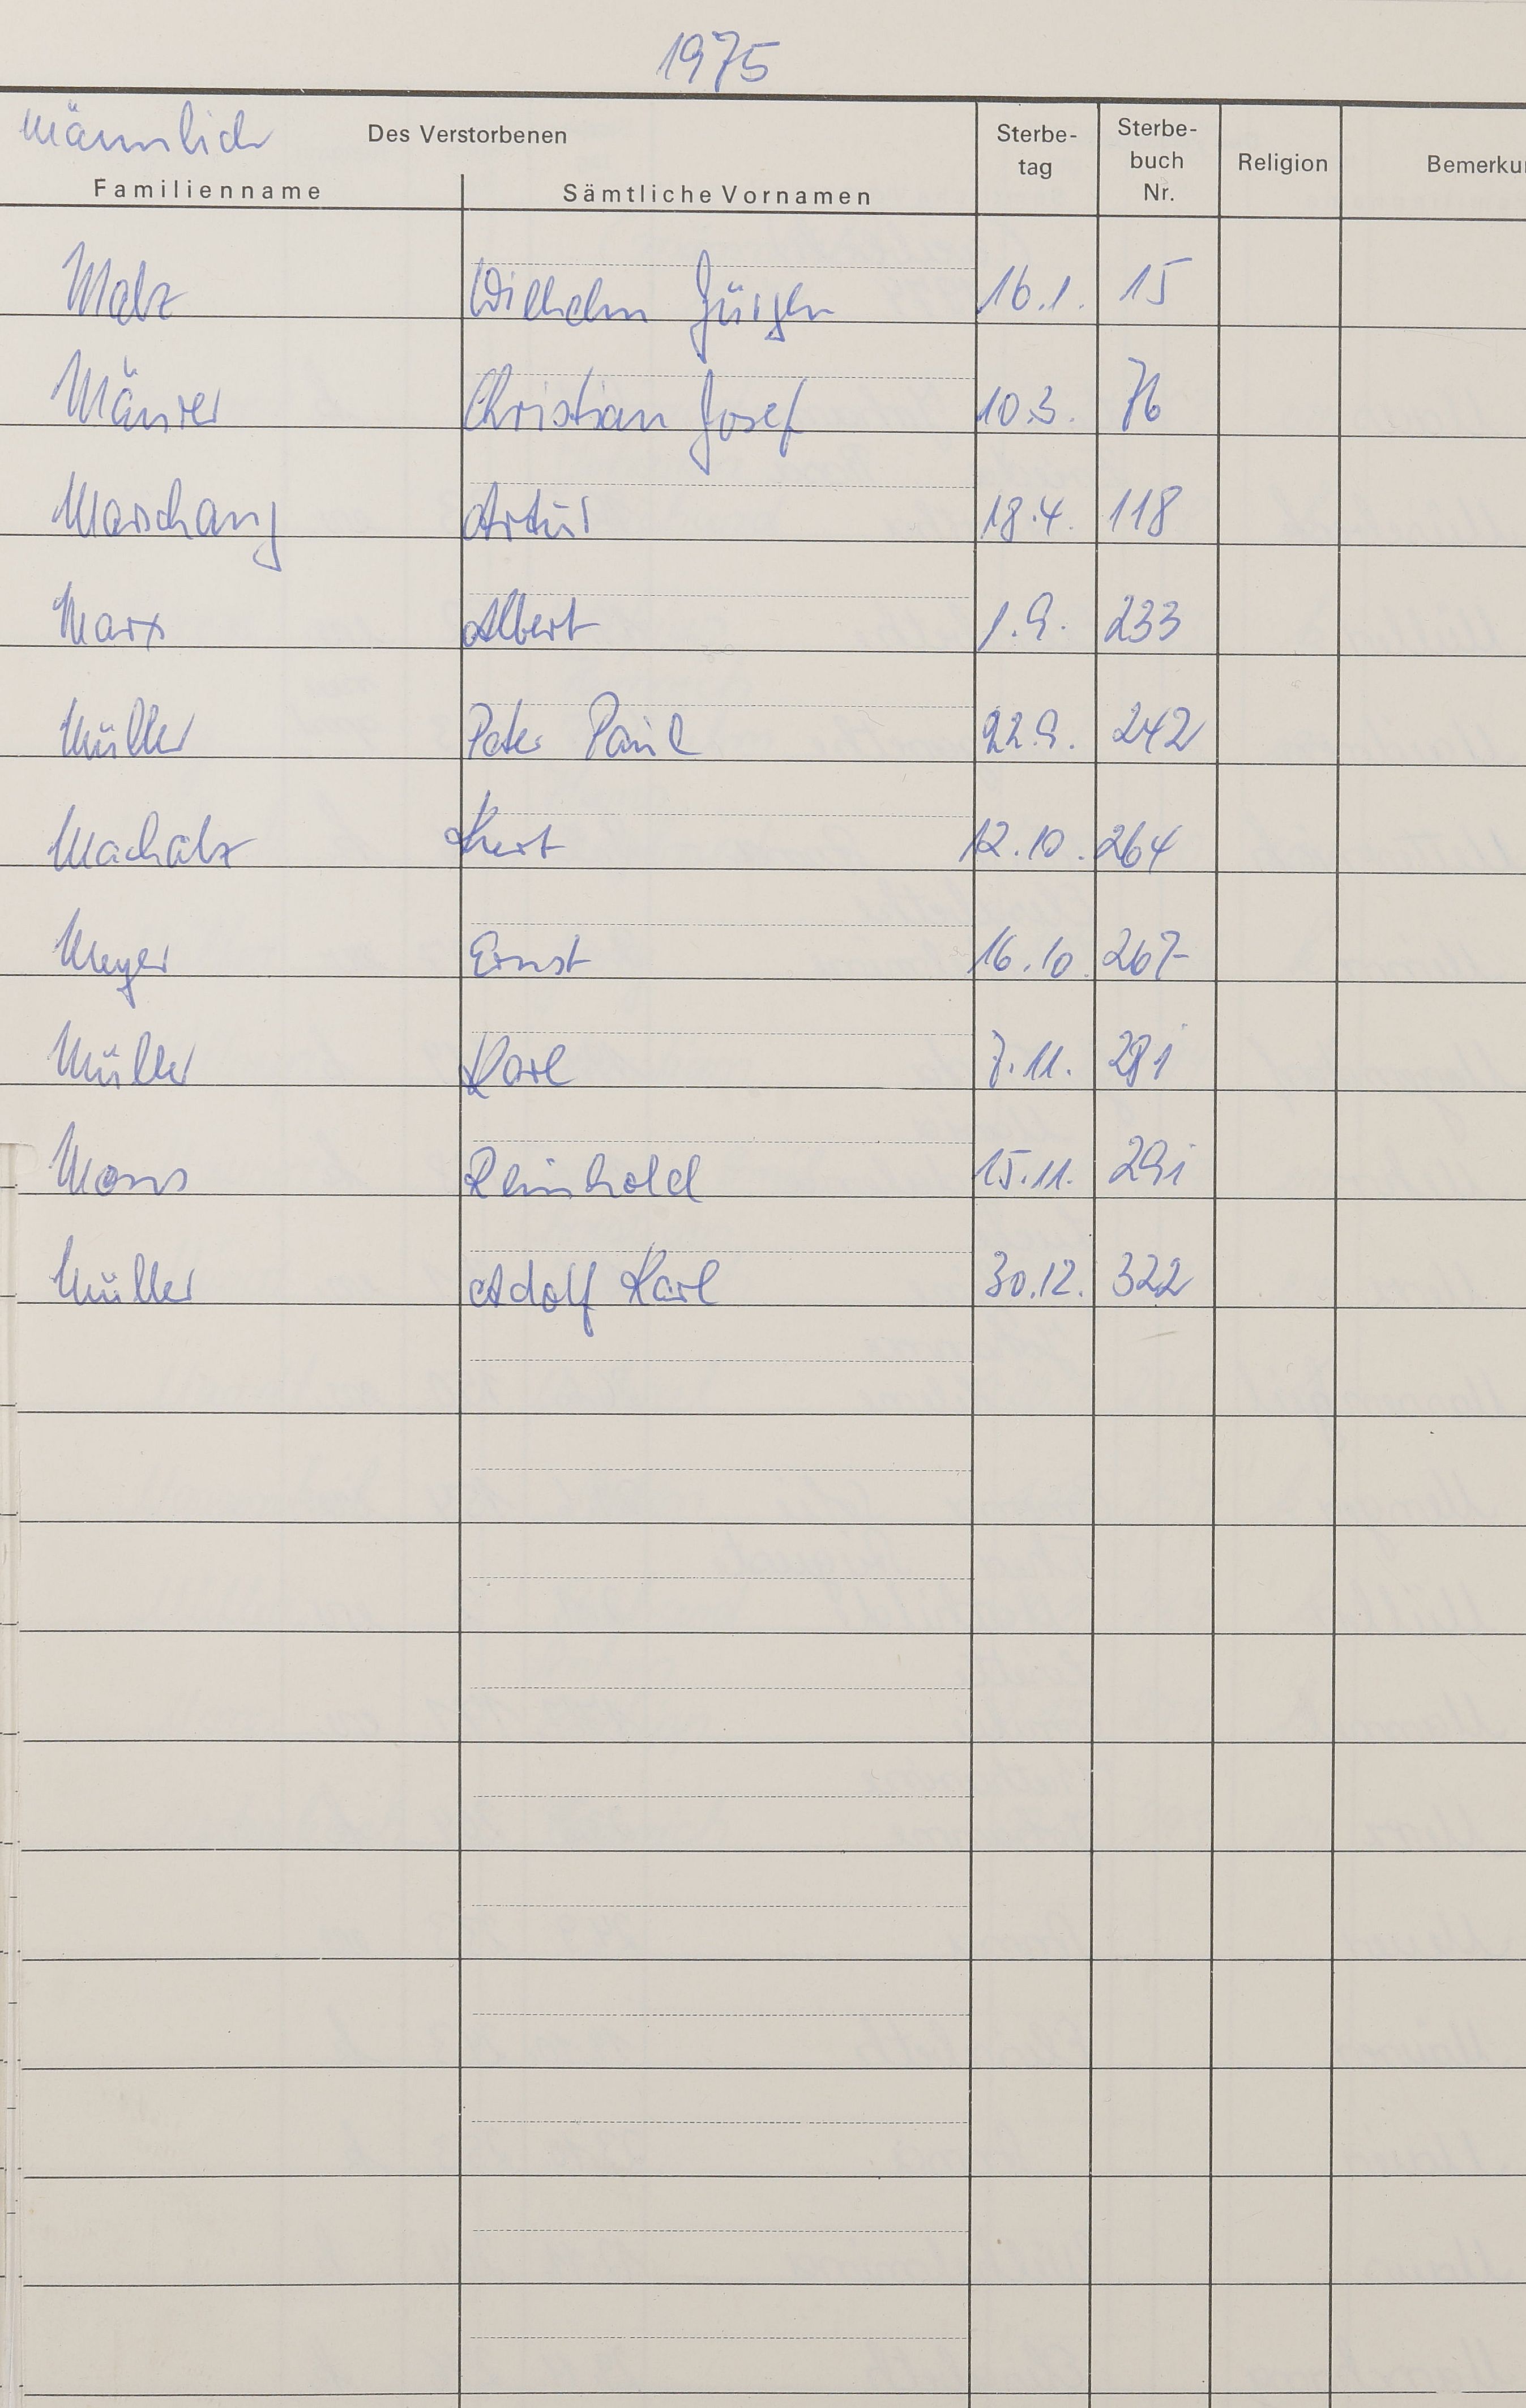 1975
männlich
Des Verstorbenen
Sterbe-
tag
Sterbe-
buch
Nr.
Religion
Bemerku
Familienname Sämtliche Vornamen
Malz Wilhelm Jürgen 16.1. 15
Mäurer Christian Josef 10.3. 76
Marschang Artur 18.4. 118
Marx Albert 1.9. 233
Müller Peter Paul 22.9. 242
Machalz Kurt 12.10. 264
Meyer Ernst 16.10. 267
Müller Karl 7.11. 281
Mons Reinhold 15.11. 291
Müller Adolf Karl 30.12. 322